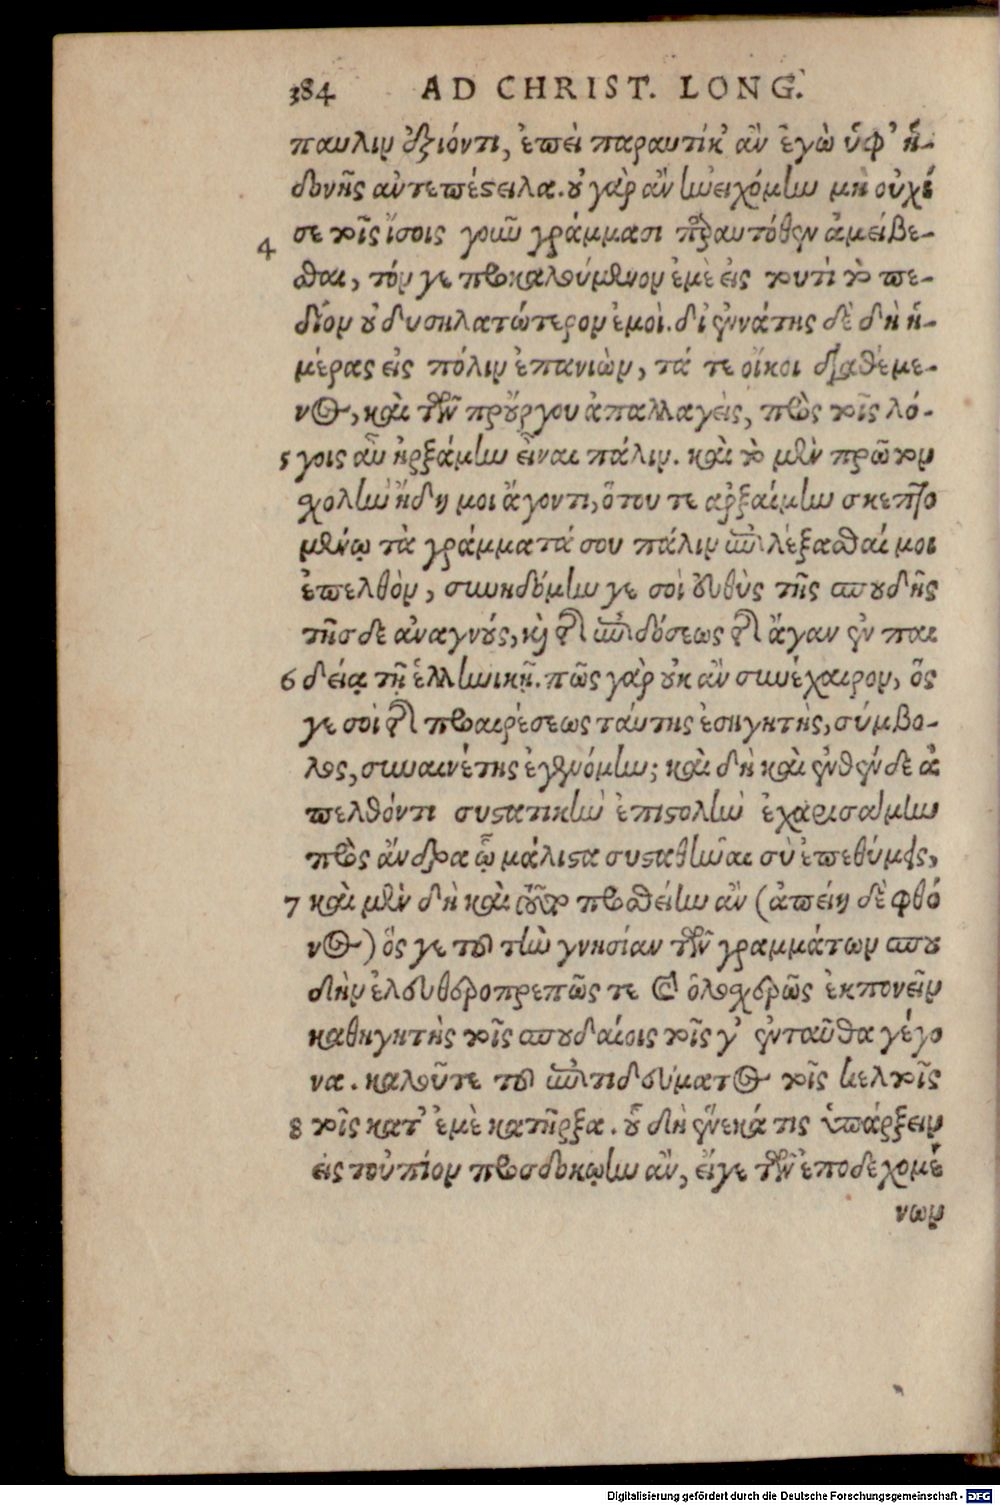 384 AD CHRIST. LONG.
παυλιν ἐξιόντι, ἐπεὶ παραυτίκ' ἂν ἐγὼ ὑφ' ἡ-
δονῆς αὐτεπέστειλα. οὐ γὰρ ἂν ἠνειχόμην μὴ οὐχί
σε τοῖς ἴσοις γοιῶ γράμμασι παραυτόθεν ἀμείβε-
4
σθαι, τόν γε προκαλούμενον ἐμὲ εἰς τουτὶ τὸ πε-
δίον οὐ δυσηλατώτερον ἐμοί. δι' ἐννάτης δὲ δὴ ἡ-
μέρας εἰς πόλιν ἐπανιὼν, τά τε οἴκοι διαθέμε-
νος, καὶ τῶν προὔργου ἀπαλλαγεὶς, πρὸς τοῖς λό-
5 γοις αὖ ἠρξάμην εἶναι πάλιν. καὶ τὸ μὲν πρῶτον
σχολὴν ἤδη μοι ἄγοντι, ὅτου τε ἀρξαίμην σκεπτο
μένῳ τὰ γράμματά σου πάλιν ἐπιλέξασθαί μοι
ἐπελθὸν, συνηδόμην γε σοὶ εὐθὺς τῆς σπουδῆς
τῆσδε ἀναγνούς, καὶ τῆς ἐπιδόσεως τῆς ἄγαν ἐν παι
6 δείᾳ τῇ ἑλληνικῇ. πῶς γὰρ οὐκ ἂν συνέχαιρον, ὅς
γε σοὶ τῆς προαιρέσεως ταύτης ἐσηγητὴς, σύμβο-
λος, συναινέτης ἐγενόμην; καὶ δὴ καὶ ἐνθένδε ἀ
πελθόντι συστατικὴν ἐπιστολὴν ἐχαρισάμην
πρὸς ἄνδρα ᾧ μάλιστα συσταθῆναι σὺ ἐπεθύμεις,
7 καὶ μὲν δὴ καὶ ὑπὲρ προσθείην ἂν (ἀπείη δὲ φθό
νος) ὅς γε τοῦ τὴν γνησίαν τῶν γραμμάτων σπου
δὴν ἐλευθεροπρεπῶς τε καὶ ὁλοσχερῶς ἐκπονεῖν
καθηγητὴς τοῖς σπουδαίοις τοῖς γ' ἐνταῦθα γέγο
να. καλοῦτε τοῦ ἐπιτιδεύματος τοῖς κελτοῖς
8 τοῖς κατ' ἐμὲ κατῆρξα. οὗ δὴ ἕνεκά τις ὑπάρξειν
εἰς τοὐπίον προσδοκῴην ἂν, εἴγε τῶν ἐποδεχομέ
νων
Digitalisierung gefördert durch die Deutsche Forschungsgemeinschaft - DFG